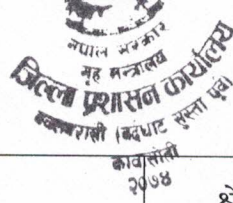 नेपाल सरकार
गृह मन्त्रालय
जिल्ला प्रशासन कार्यालय
नवलपरासी (बर्दघाट सुस्ता पूर्व)
कावासोती
२०७४